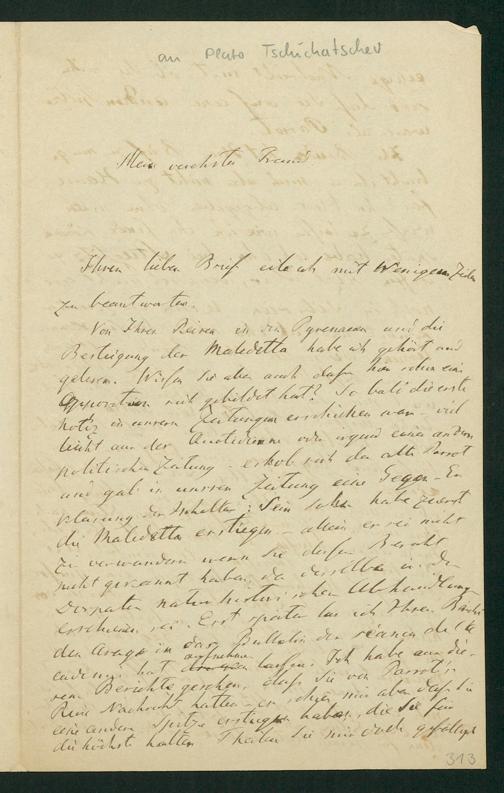 an Plato Tschichatschev
Mein verehrter Freund
Ihren lieben Brief eile ich mit Wenigem Zeilen
zu beantworten.
Von Ihren Reisen in den Pyrenaeen und die
Besteigung der Maledetta habe ich gehört und
gelesen. Wissen Sie aber auch dass hier schon eine
Opposition sich gebildet hat? So bald die erste
Notiz in unsern Zeitungen erschienen war - viel
leicht aus der Quotidienne oder irgend einer andern
politischen Zeitung - erhob sich der alte Parrot
und gab in unsren Zeitung eine Gegen-Er
klärung des Inhaltes: Sein Sohn habe zuerst
die Maledetta erstiegen - allein es sei nicht
zu verwundern wenn Sie dessen Bericht
nicht gekannt haben, da derselbe in den
Dorpater naturhistorischen Abhandlungen
erschienen sei. Erst später las ich Ihren Bericht
den Arago in das Bulletin der séances de l'A
cademie hat aufnehmen lassen. Ich habe aus die
sem Berichte gesehen, dass Sie von Parrot's
Reise Nachricht hatten - es schien mir aber dass Sie
eine andere Spitze erstiegen haben, die Sie für
die höchste halten. Theilen Sie mir doch gefälligst
313